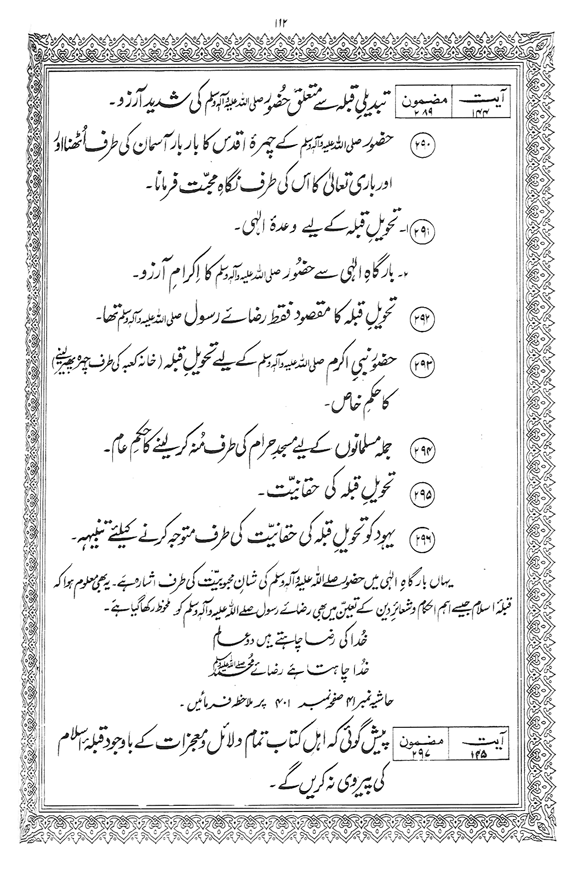 ۱۱۲
آیت ۱۴۴ مضمون ۲۸۹ تبدیلیِ قبلہ سے متعلق حضور صلی اللہ علیہ وآلہٖ وسلم کی شدید آرزو۔
۲۹۰ حضور صلی اللہ علیہ وآلہٖ وسلم کے چہرۂ اقدس کا بار بار آسمان کی طرف اُٹھنا اور
اور باری تعالیٰ کا اس کی طرف نگاہِ محبت فرمانا۔
۲۹۱ ۱۔ تحویلِ قبلہ کے لیے وعدۂ الٰہی۔
۲۔ بارگاہِ الٰہی سے حضور صلی اللہ علیہ وآلہٖ وسلم کا اِکرامِ آرزو۔
۲۹۲ تحویلِ قبلہ کا مقصود فقط رضائے رسول صلی اللہ علیہ وآلہٖ وسلم تھا۔
۲۹۳ حضور نبیِ اکرم صلی اللہ علیہ وآلہٖ وسلم کے لیے تحویلِ قبلہ (خانہ کعبہ کی طرف چہرہ پھیر لینے)
کا حکمِ خاص۔
۲۹۴ جملہ مسلمانوں کے لیے مسجدِ حرام کی طرف مُنہ کر لینے کا حکمِ عام۔
۲۹۵ تحویلِ قبلہ کی حقانیّت۔
۲۹۶ یہود کو تحویلِ قبلہ کی حقانیت کی طرف متوجہ کرنے کیلئے تنبیہہ۔
یہاں بارگاہِ الٰہی میں حضور صلے اللہ علیہ وآلہٖ وسلم کی شانِ محبوبیّت کی طرف اشارہ ہے۔ یہ بھی معلوم ہوا کہ
قبلۂ اسلام جیسے اہم احکام و شعائرِ دین کے تعیّن میں بھی رضائے رسول صلی اللہ علیہ وآلہٖ وسلم کو ملحوظ رکھا گیا ہے۔
خُدا کی رضا چاہتے ہیں دو عالم
خُدا چاہتا ہے رضائے محمّد صلی اللہ علیہ وسلم
حاشیہ نمبر ۴۱ صفحہ نمبر ۴۰۱ پر ملاحظہ فرمائیں۔
آیت ۱۴۵ مضمون ۲۹۷ پیش گوئی کہ اہلِ کتاب تمام دلائل و معجزات کے باوجود قبلۂ اسلام
کی پیروی نہ کریں گے۔